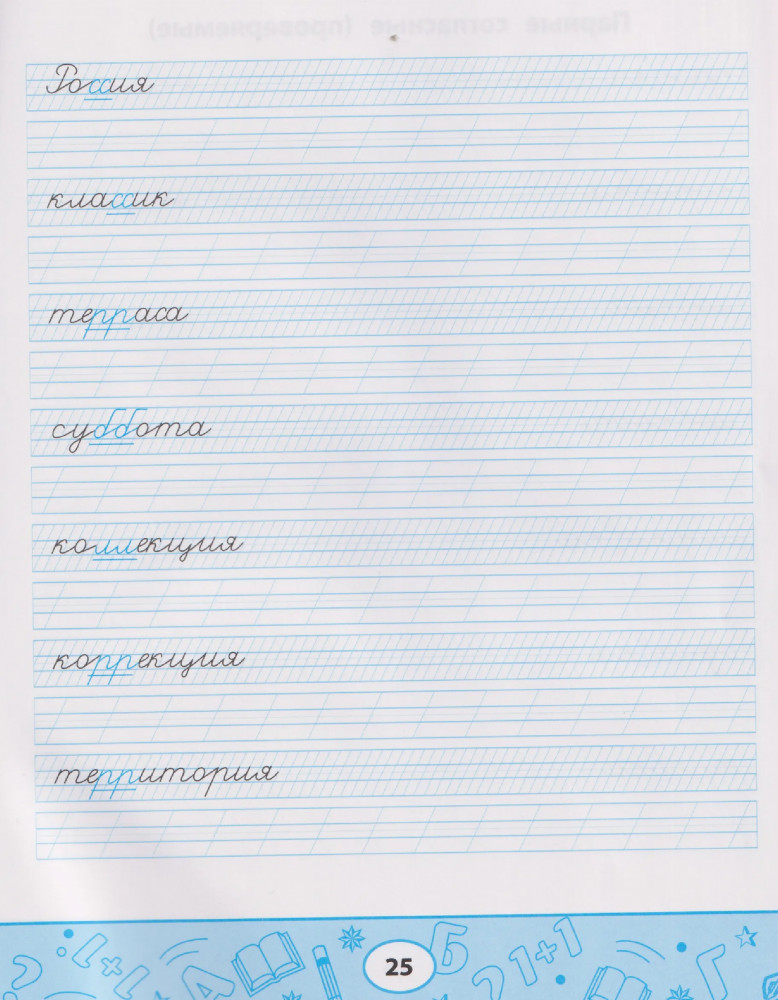 Парные согласные (проверяемые)
Россия
классик
терраса
суббота
коллекция
коррекция
территория
1+1
А
Б
1+1
Г
25